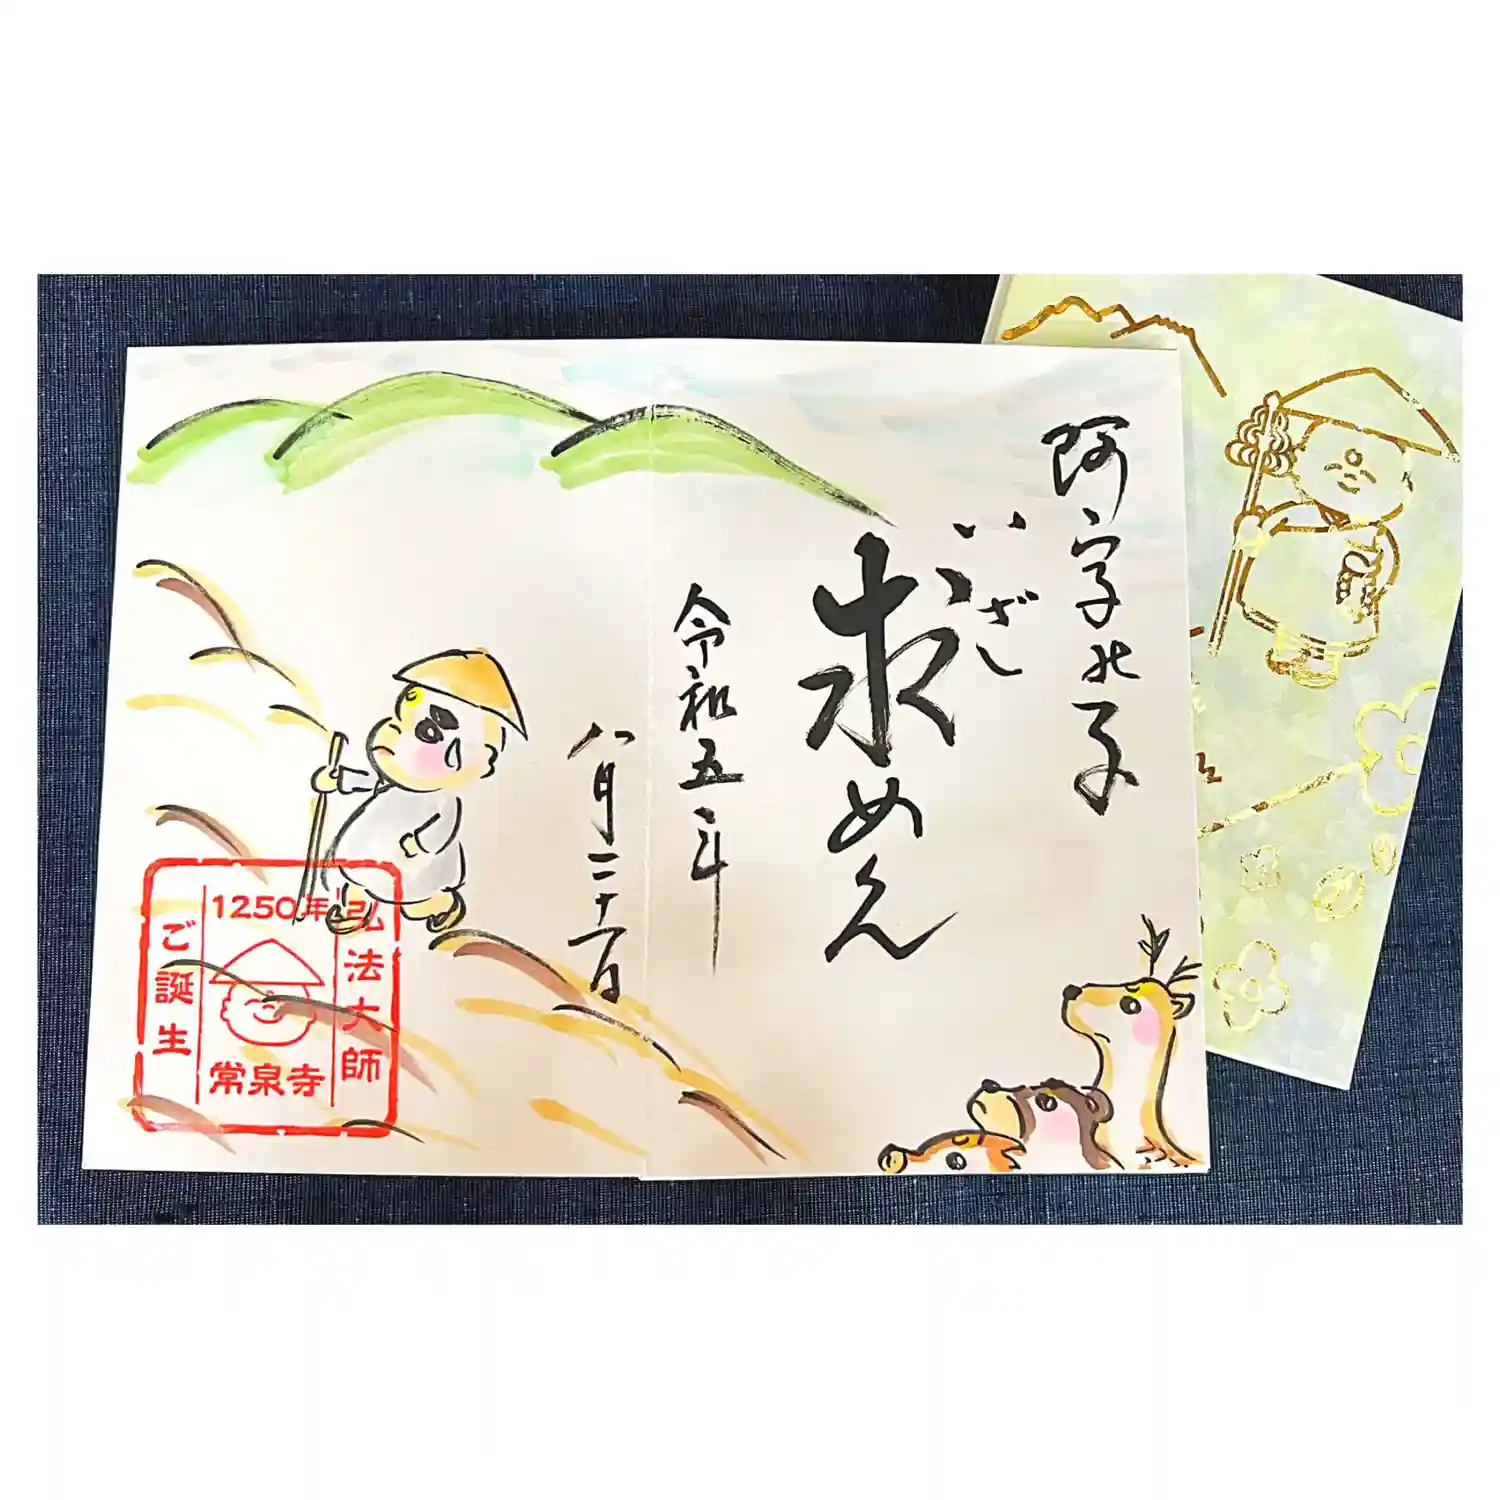 阿字の子
いざし
求めん
令和五年
八月二十一日
弘法大師
1250年
常泉寺
ご誕生